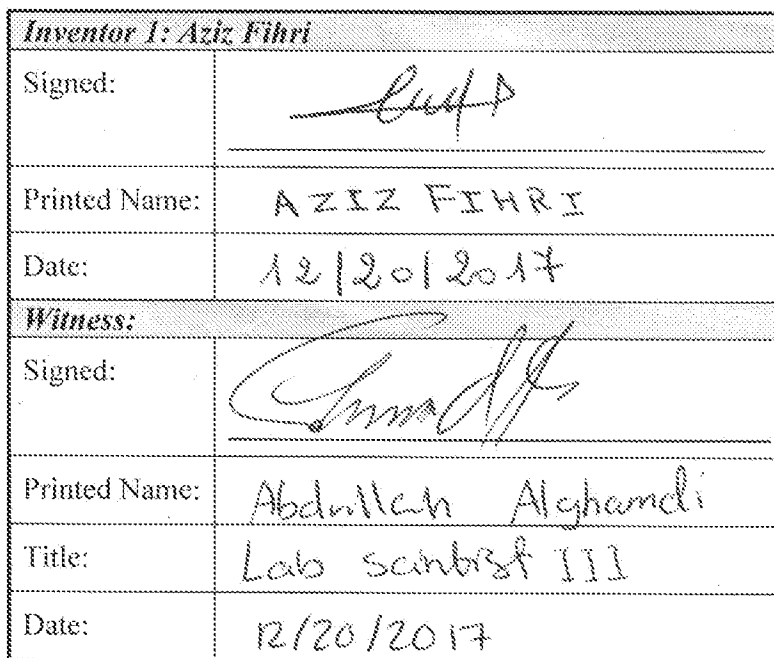 Inventor 1: Aziz Fihri
Signed:
Printed Name: AZIZ FIHRI
Date: 12/20/2017
Witness:
Signed:
Printed Name: Abdullah Alghamdi
Title: Lab Scintist III
Date: 12/20/2017